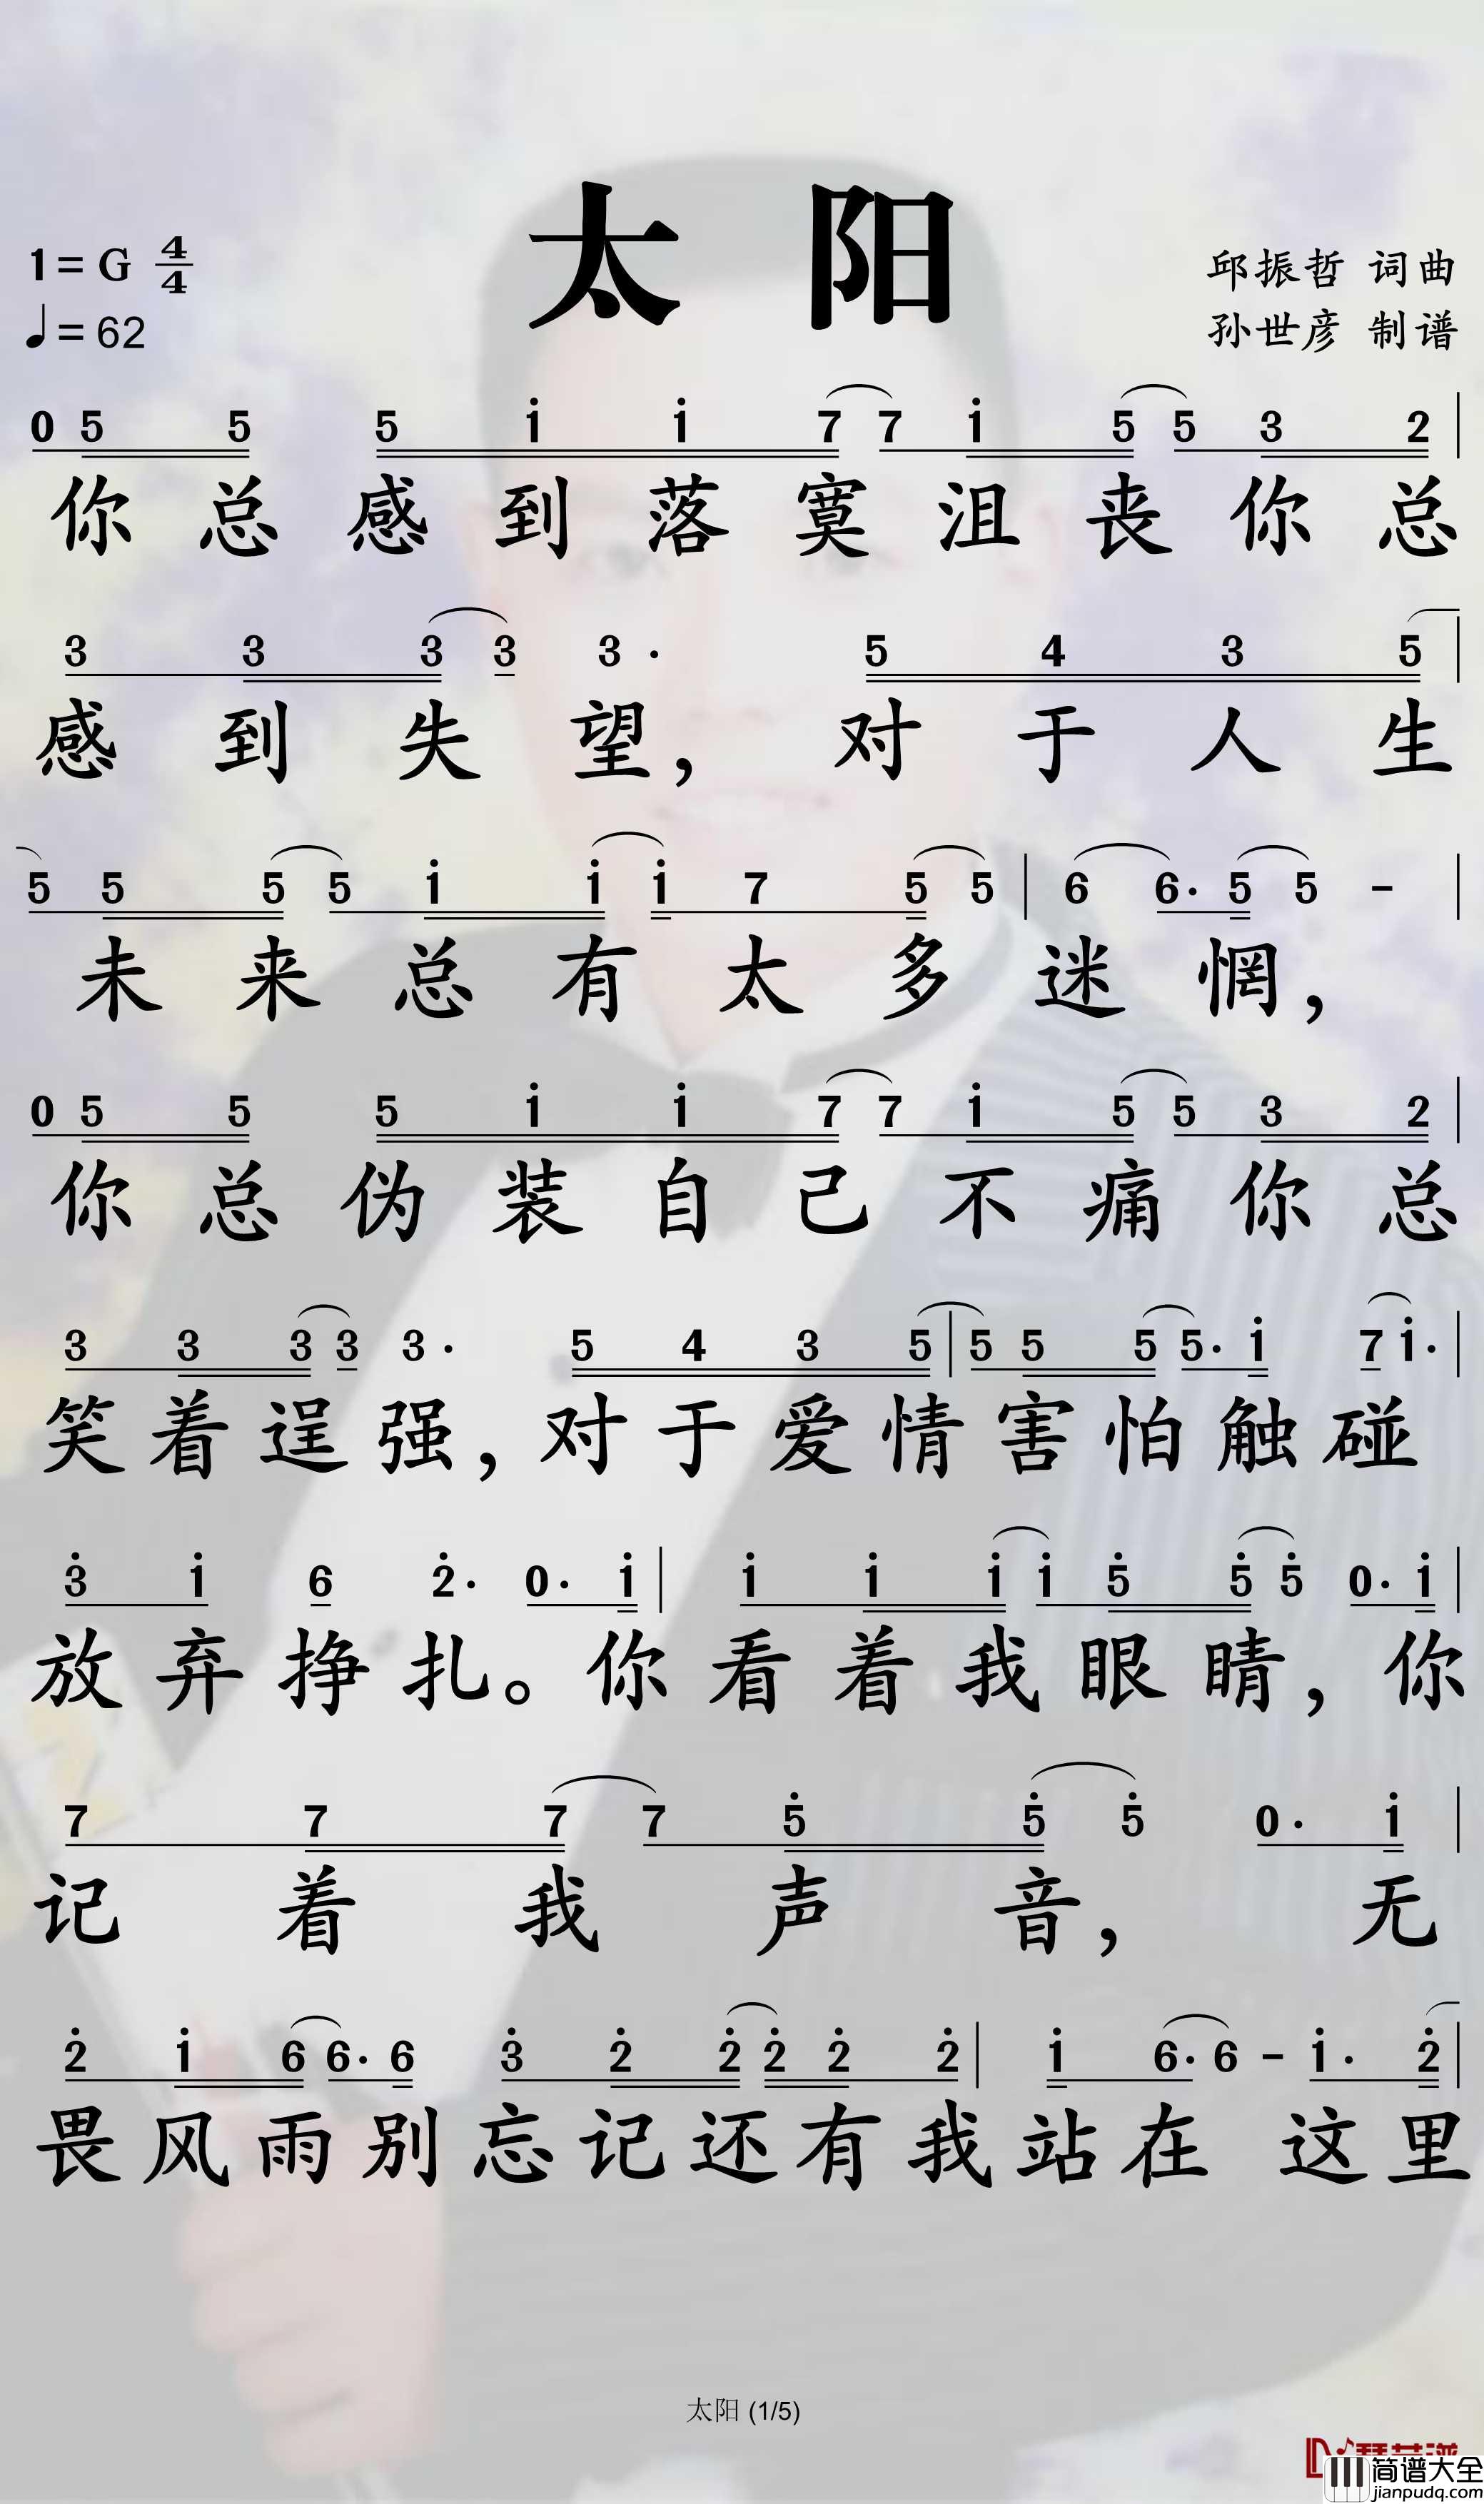 太 阳
1= G 4/4
♩= 62
邱振哲 词曲
孙世彦 制谱
0 5 5 5 i i 7 7 i 5 5 3 2 |
你总感到落寞沮丧你总
3 3 3 3 3 · 5 4 3 5 |
感到失望，对于人生
5 5 5 5 i i i 7 5 5 | 6 6· 5 5 - |
未来总有太多迷惘，
0 5 5 5 i i 7 7 i 5 5 3 2 |
你总伪装自己不痛你总
3 3 3 3 3 · 5 4 3 5 | 5 5 5 5· i 7 i· |
笑着逞强，对于爱情害怕触碰
3̇ i 6 2̇· 0· i | i i i i 5̇ 5̇ 5̇ 0· i |
放弃挣扎。你看着我眼睛，你
7 7 7 7 5̇ 5̇ 5̇ 0· i |
记着我声音，无
2̇ i 6 6· 6 3̇ 2̇ 2̇ 2̇ 2̇ 2̇ | i 6· 6 - i· 2̇ |
畏风雨别忘记还有我站在 这里
太阳 (1/5)
简谱大全
jianpudq.com